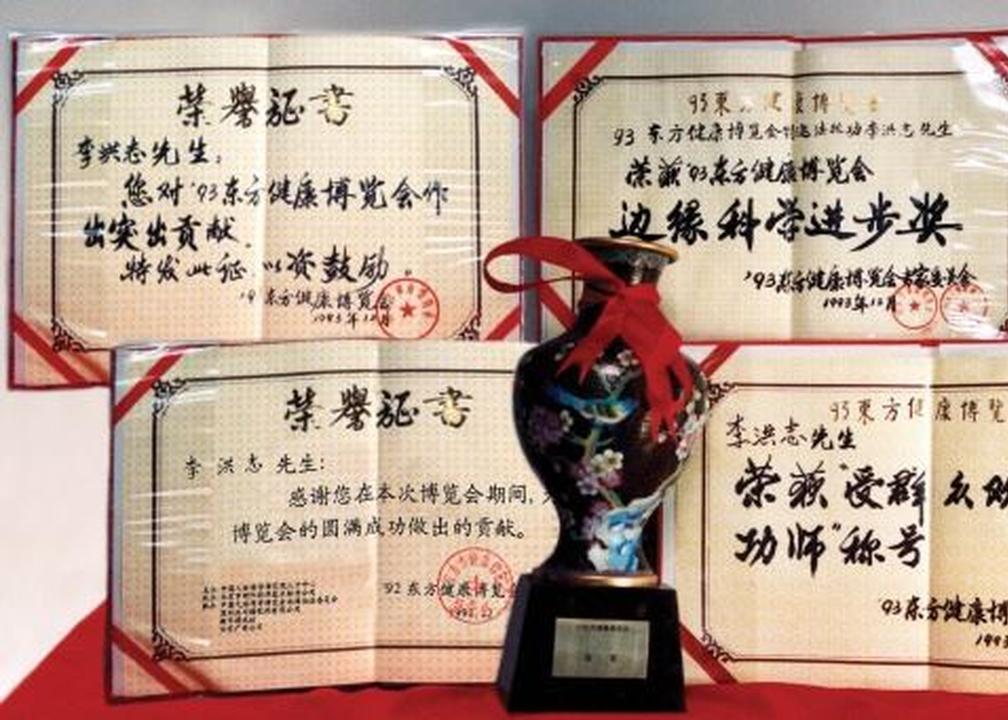 荣誉证书
李洪志先生：
您对'93东方健康博览会作
出突出贡献。
特发此证 以资鼓励。
东方健康博览会
1993年12月
93東 健康博览会
93 东方健康博览会 法轮功李洪志先生
荣获'93东方健康博览会
边缘科学进步奖
'93东方健康博览会专家委员会
1993年12月
荣誉证书
李洪志 先生:
感谢您在本次博览会期间,
博览会的圆满成功做出的贡献。
'92 东方健康博览会
93東方健康博
李洪志先生
荣获“受群众
功师”称号
'93东方健康博
1993